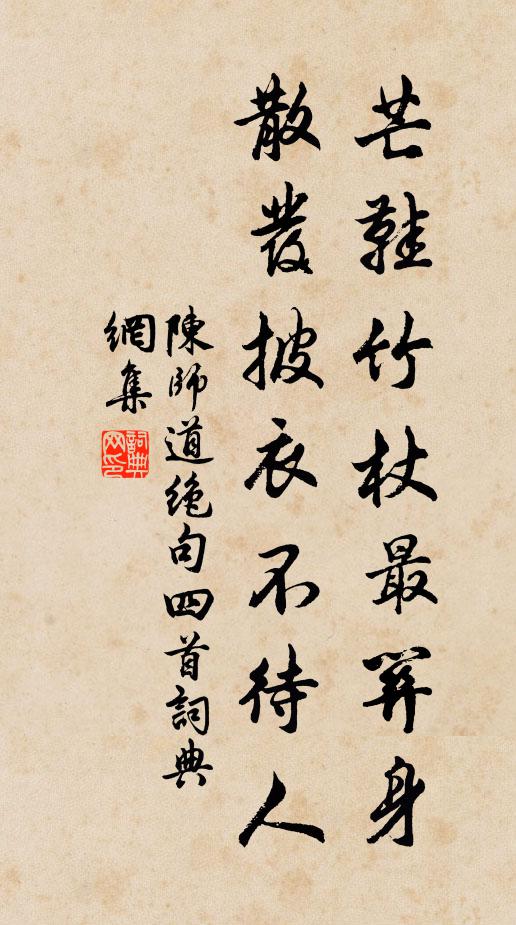 芒鞋竹杖最身
散發披衣不待人
陳師道絶句四首詞典
網集
詞典
网印